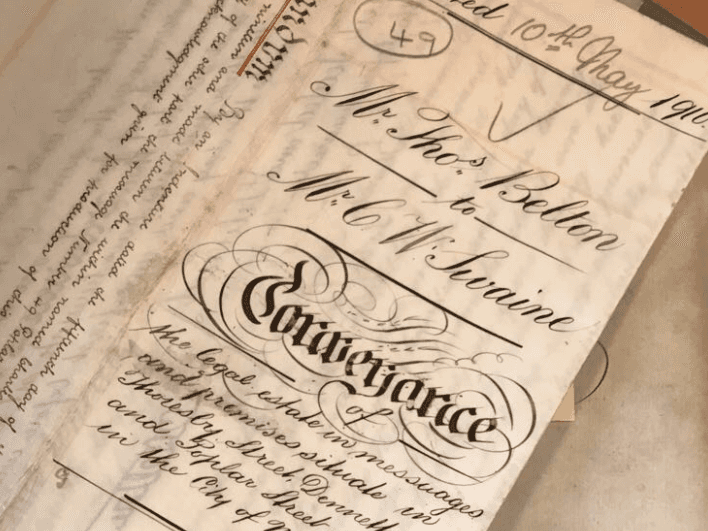 49
10th May 1910.
Mr. Thos. Belton
to
Mr. C. W. Swaine
Conveyance
of
the legal estate in messuages
and premises situate in
Thoresby Street, Dennett
and Poplar Street
in the City of
By an Indenture dated the fifteenth day of
nineteen and made between the within named Charles
of the other part the messuage Number 49
acknowledgment given for production of this